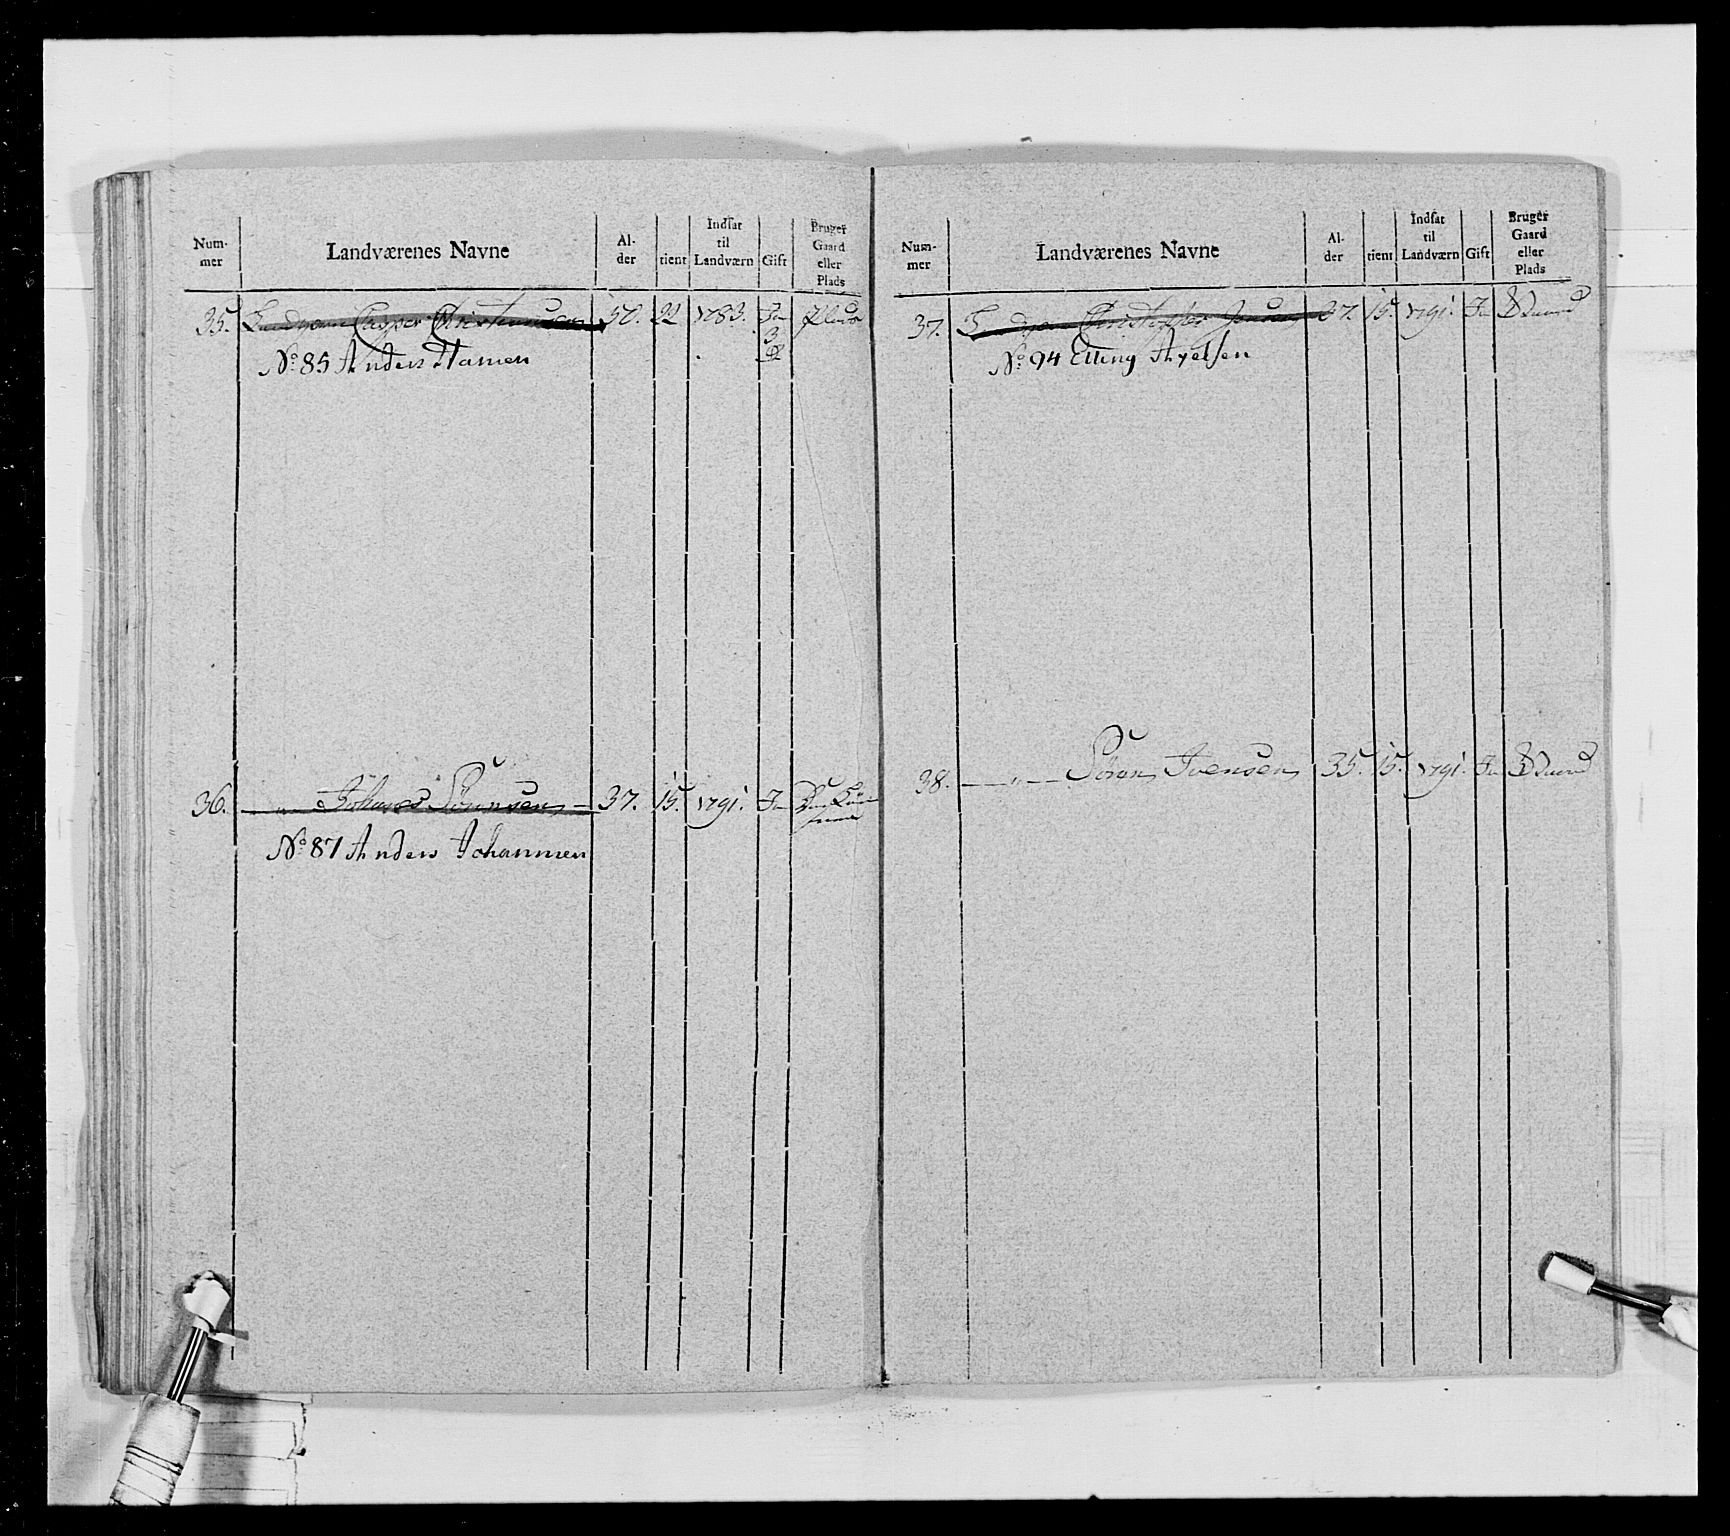 Num-
mer
Landværenes Navne
Al-
der
tient
Indsat
til
Landværn
Gift
Bruger
Gaard
eller
Plads
35. Landværn Casper Christensen 50. 22 1783. Ja
3
No 85 Anders Hansen
36. — " — Johanes Sörensen — 37. 15. 1791. Ja
No 87 Anders Johannsen
Num-
mer
Landværenes Navne
Al-
der
tient
Indsat
til
Landværn
Gift
Bruger
Gaard
eller
Plads
37. Christopher Jensen 37. 15. 1791. Ja
No 94 Elling Axelsen
38. — " — Sören Ivensen 35. 15. 1791. Ja